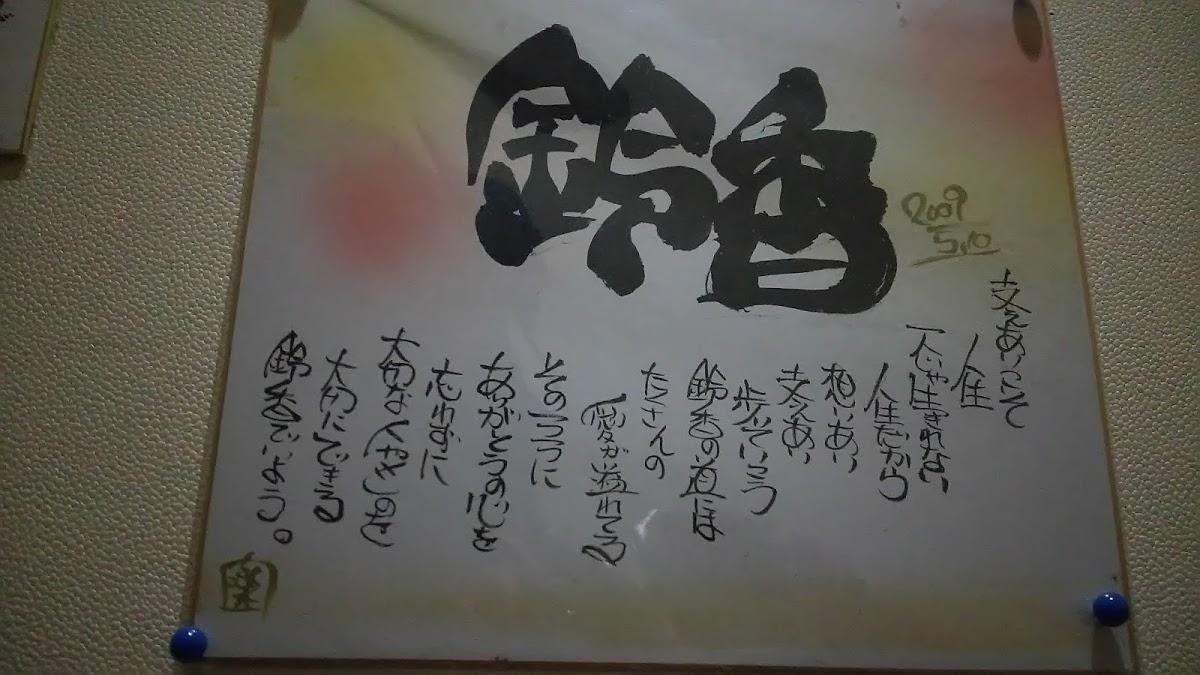 鈴香
2009
5.10
支えあいこそ
人生
一人じゃ生きれない
人生だから
想いあい
支えあい
歩いていこう
鈴香の道には
たくさんの
愛が溢れてる
その一つ一つに
ありがとうの心を
忘れずに
大切なべきものを
大切にできる
鈴香でいよう。